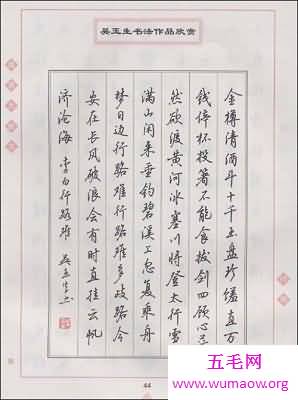 吴玉生书法作品欣赏
金樽清酒斗十千玉盘珍馐直万
钱停杯投箸不能食拔剑四顾心茫
然欲渡黄河冰塞川将登太行雪
满山闲来垂钓碧溪上忽复乘舟
梦日边行路难行路难多歧路今
安在长风破浪会有时直挂云帆
济沧海 李白行路难 吴玉生书
44
五毛网
www.wumaow.org